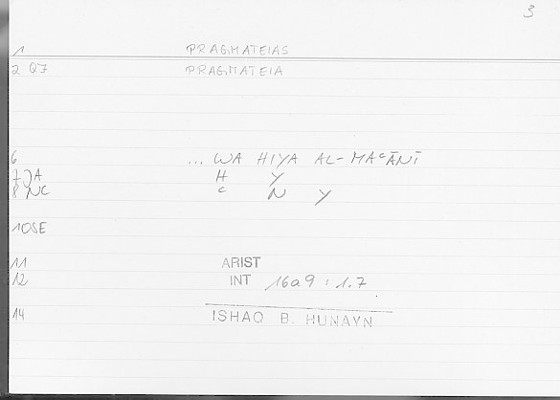 3
1 PRAGMATEIAS
2 07 PRAGMATEIA
6 ... WA HIYA AL-MAᶜĀNĪ
7 JA H Y
8 NC ᶜ N Y
10 SE
11 ARIST
12 INT 16a9 : 1.7
14 ISHAQ B. HUNAYN